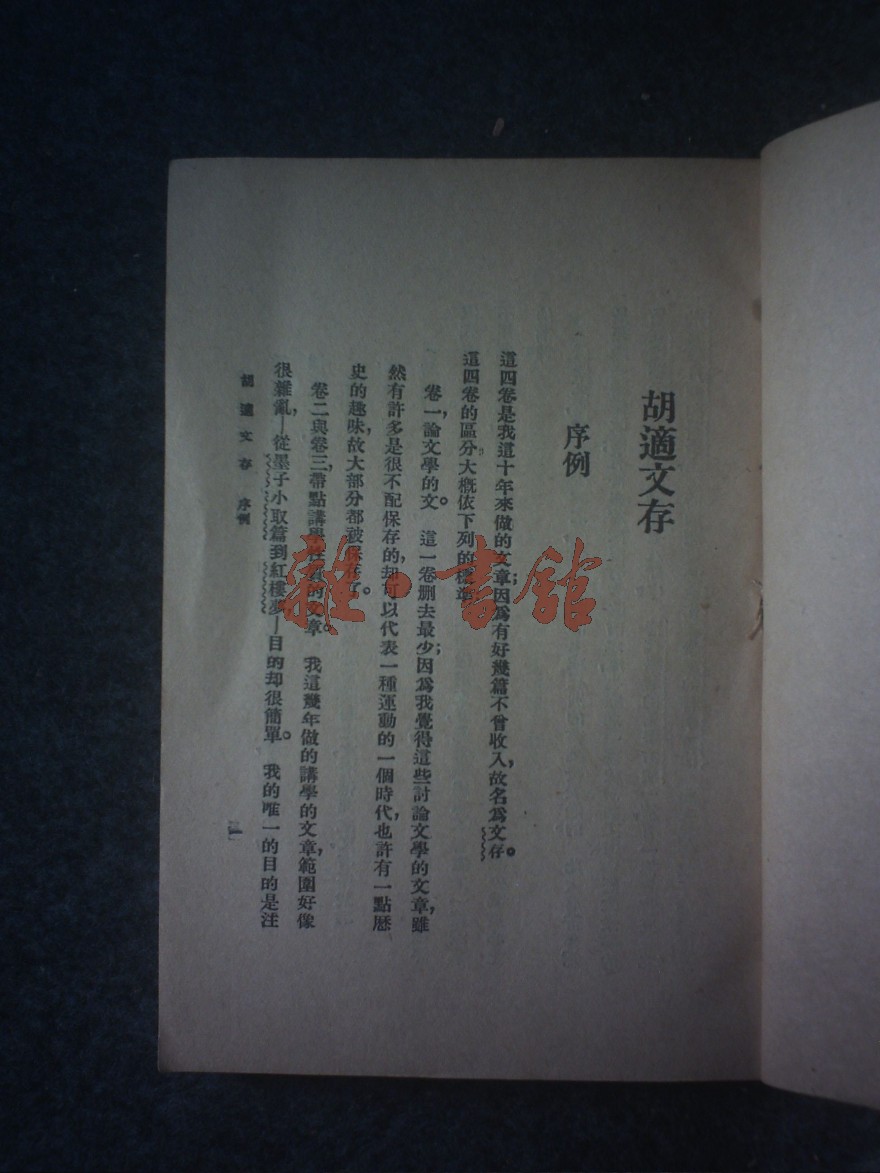 胡適文存
序例
這四卷是我這十年來做的文章;因爲有好幾篇不曾收入,故名爲文存。
這四卷的區分,大概依下列的標準:
卷一,論文學的文。 這一卷刪去最少;因爲我覺得這些討論文學的文章,雖
然有許多是很不配保存的,却可以代表一種運動的一個時代,也許有一點歷
史的趣味,故大部分都被保存了。
卷二與卷三,帶點講學性質的文章。 我這幾年做的講學的文章,範圍好像
很雜亂,—從墨子小取篇到紅樓夢—目的却很簡單。 我的唯一的目的是注
胡適文存 序例
一
雜·書館